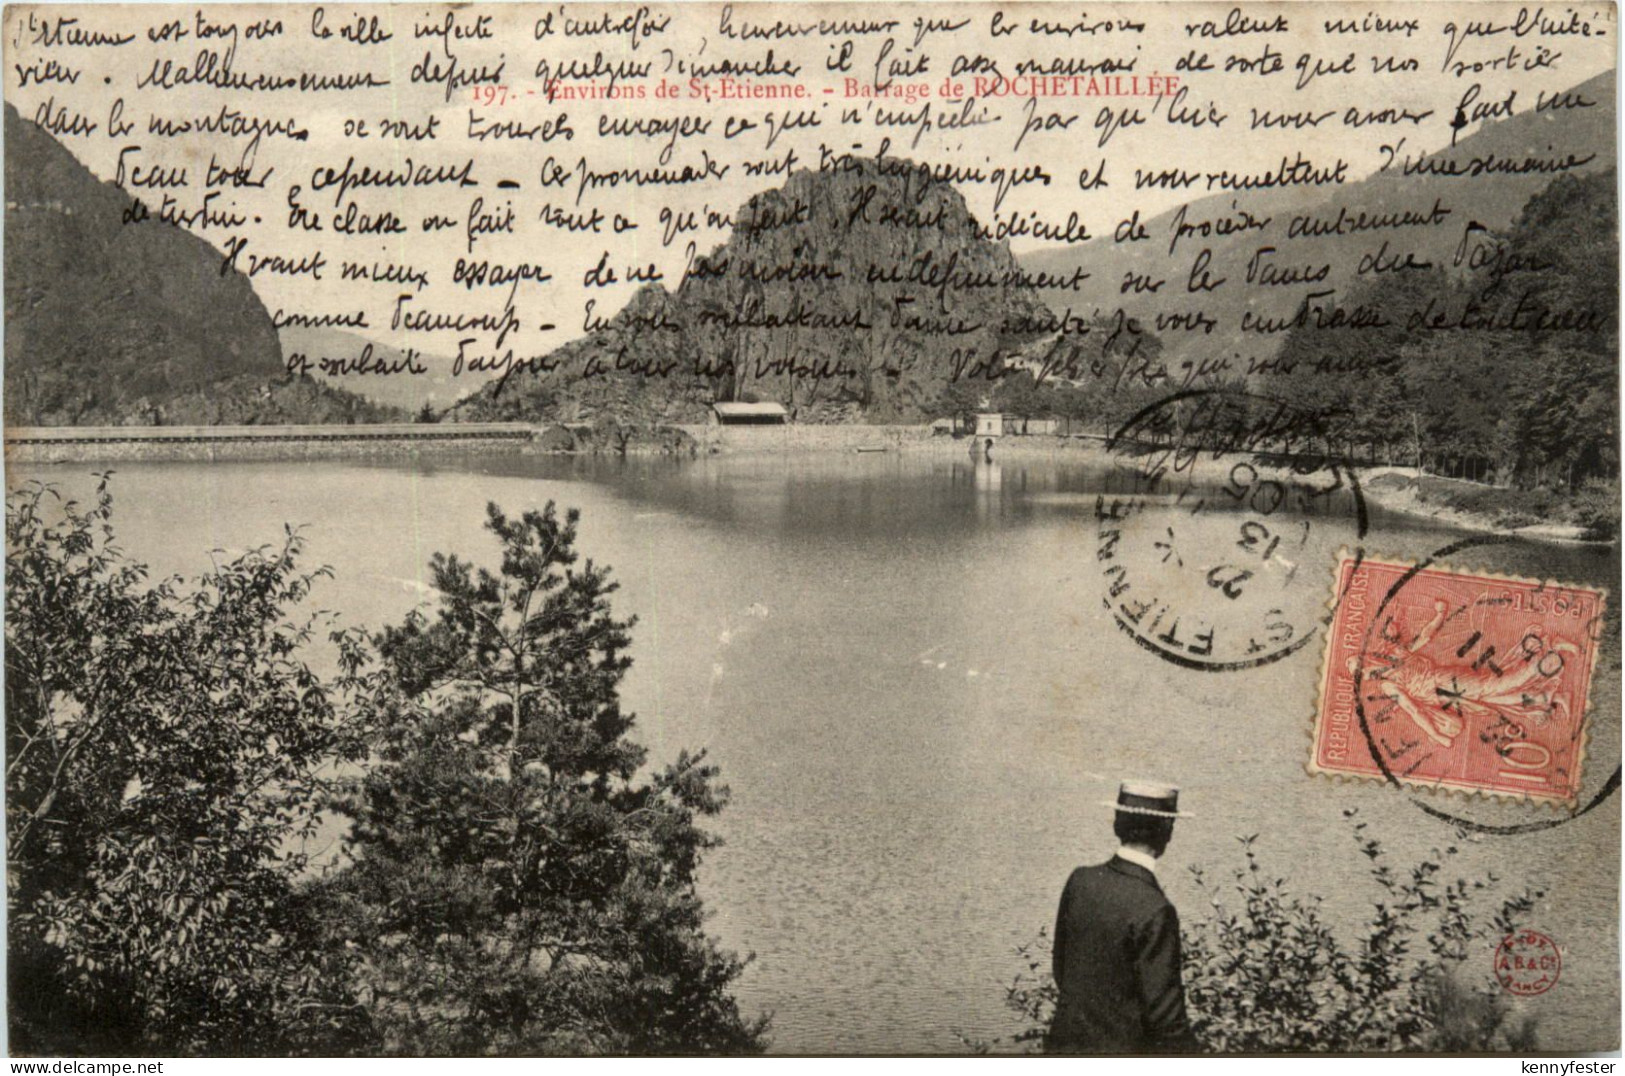 St Etienne est toujours la ville infecte d'autrefois, heureusement que les environs valent mieux que l'inté-
rieur. Malheureusement depuis quelques dimanches il fait assez mauvais de sorte que nos sorties
197. - Environs de St-Étienne. - Barrage de ROCHETAILLÉE
dans les montagnes se sont trouvées enrayées ce qui n'empêche pas qu'hier nous avons fait un
beau tour cependant - Ces promenades sont très hygiéniques et nous remettent d'une semaine
de turbin. En classe on fait tout ce qu'on peut. Il serait ridicule de procéder autrement
Il vaut mieux essayer de ne pas moisir indéfiniment sur les bancs du bazar
comme beaucoup - En vous souhaitant bonne santé je vous embrasse de tout cœur
et souhaite bonjour à tous nos voisins - Votre fils qui vous aime
ST ETIENNE
22
13
05
RÉPUBLIQUE FRANÇAISE
POSTES
10
11
05
PHOT
A.B.& Cie
NANCY
kennyfester